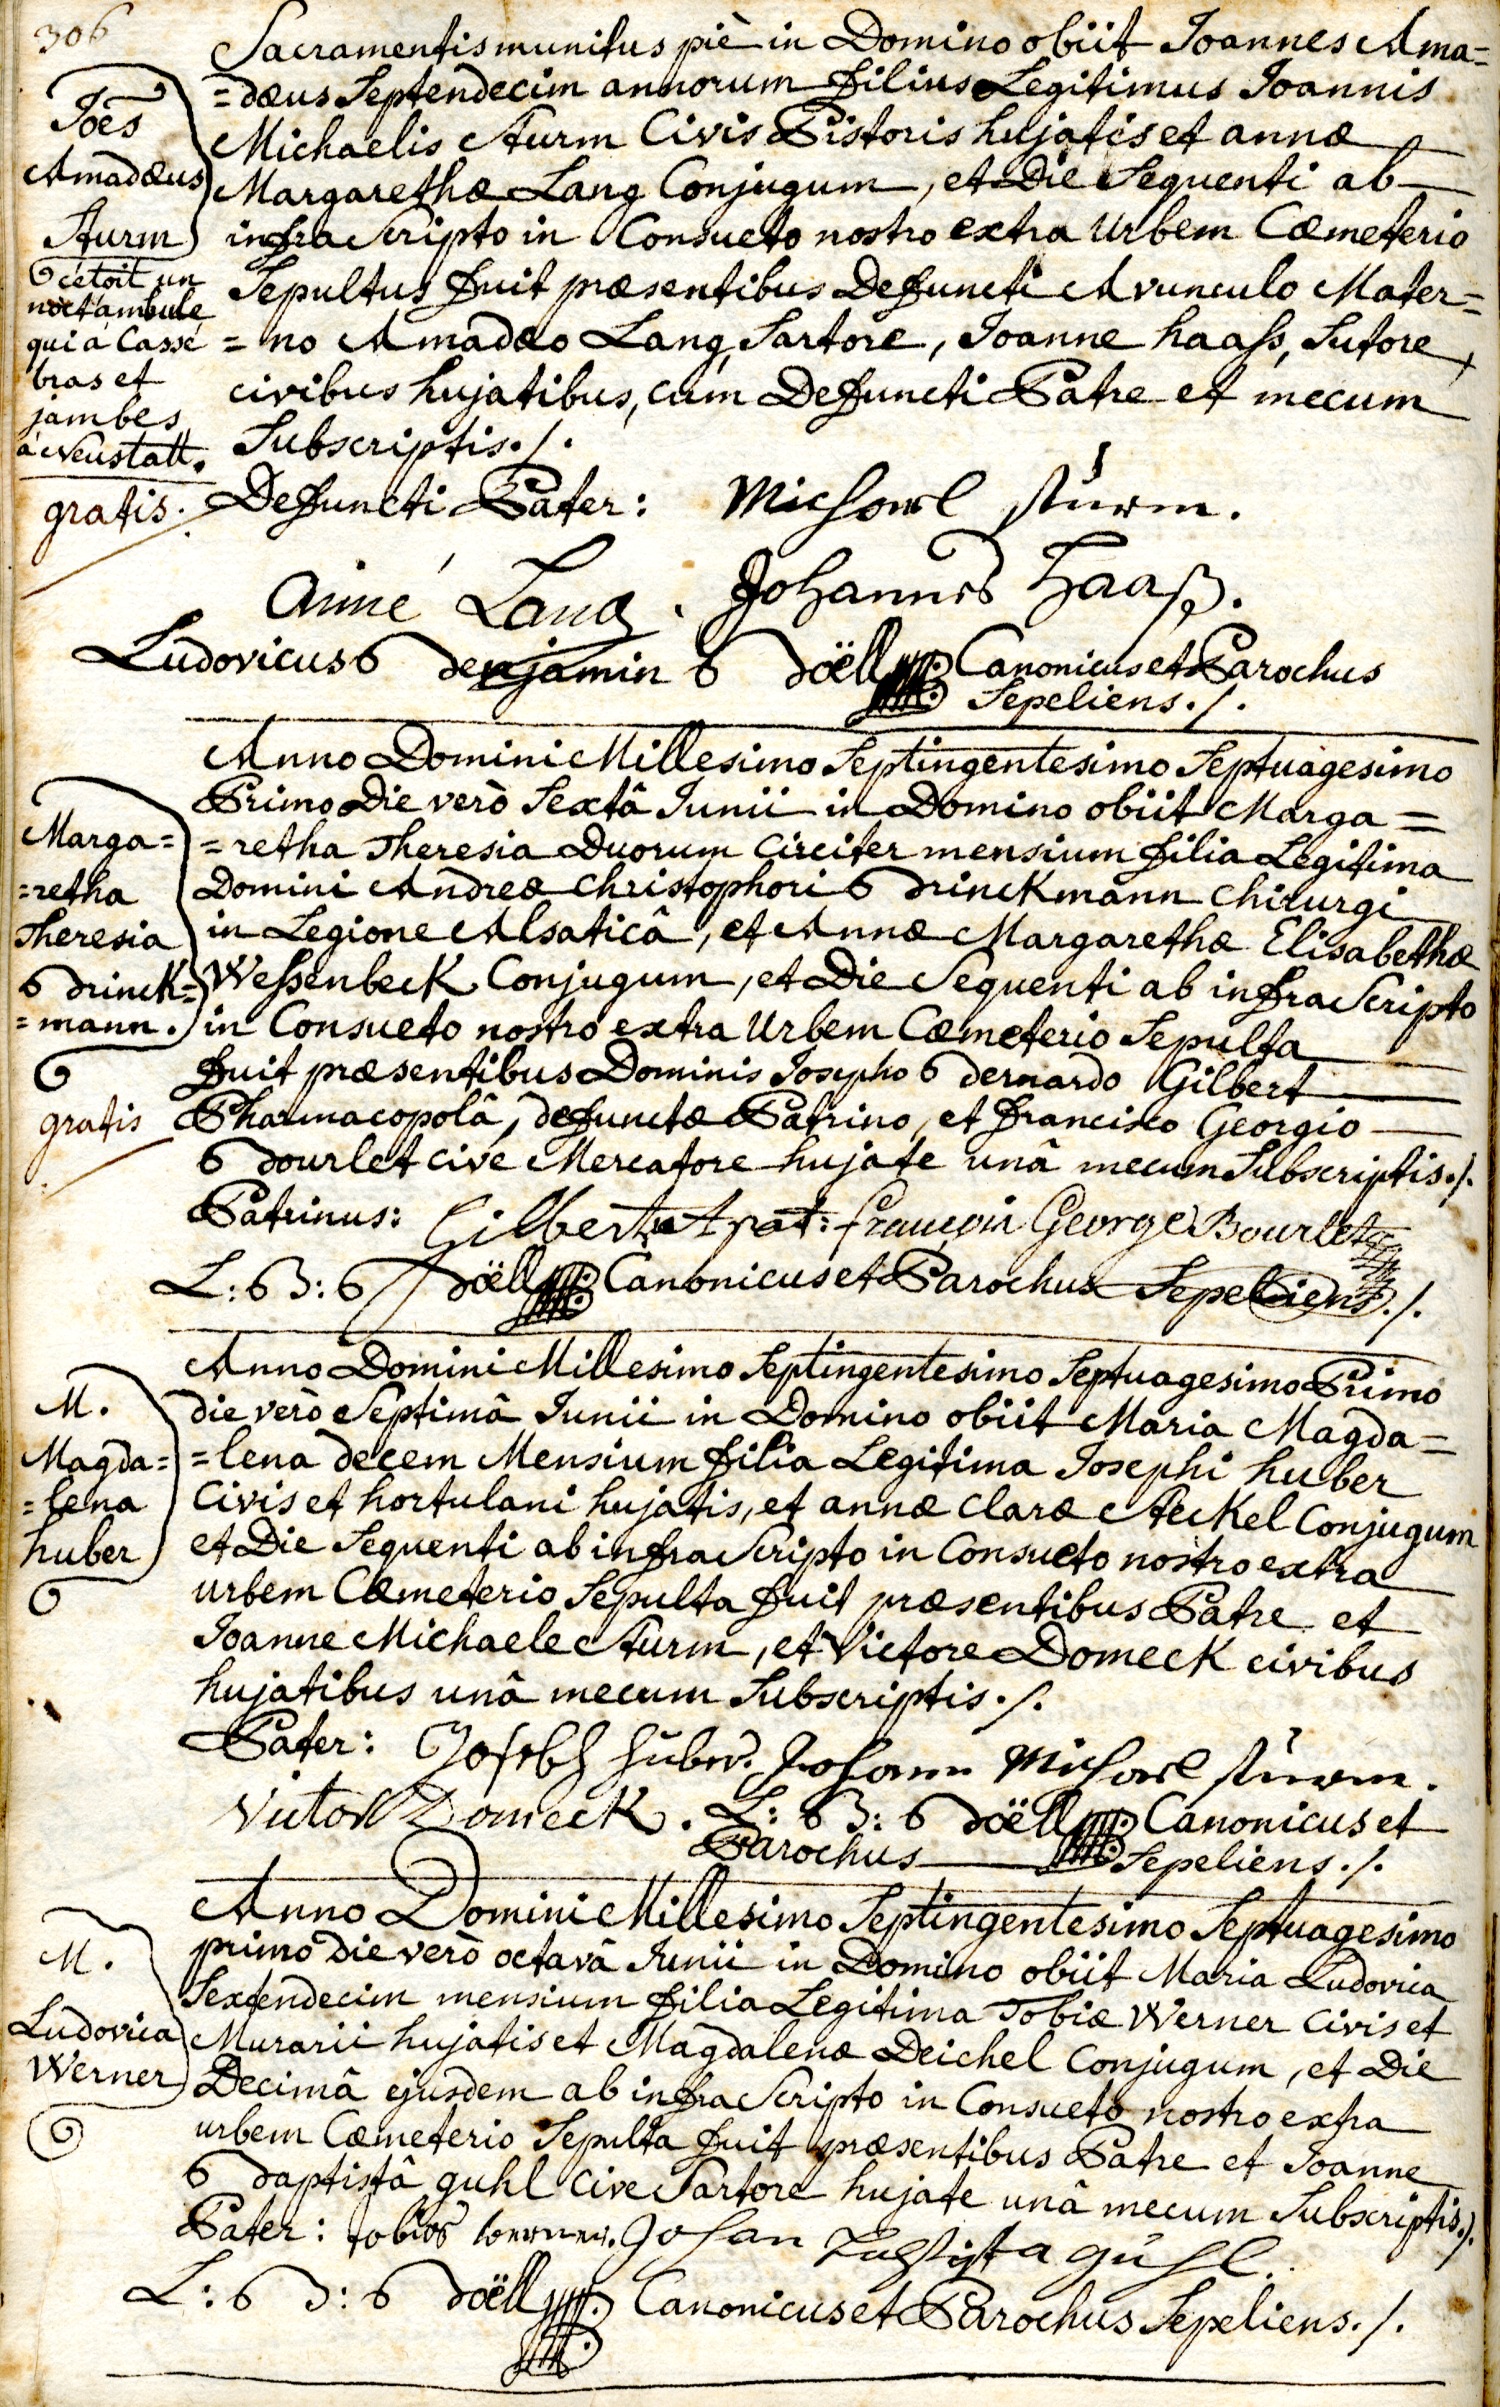 306
Sacramentis munitus piè in Domino obiit Joannes Ama=
=dæus Septendecim annorum filius Legitimus Joannis
Michaelis Sturm Civis Pistoris hujatis et annæ
Margarethæ Lang Conjugum, et Die Sequenti ab
infra Scripto in Consueto nostro extra Urbem Cœmeterio
Sepultus fuit præsentibus Defuncti Avunculo Mater=
=no Amadæo Lang Sartore, Joanne haass, Sutore,
civibus hujatibus, cum Defuncti Patre et mecum
Subscriptis./.
Joēs
Amadæus
Sturm
c'etoit un
noctambule
qui a Cassé
bras et
jambes
a Neustatt.
gratis.
Defuncti Pater: Michael Sturm.
aimé Lang. Johannes Haaß.
Ludovicus Benjamin Böell Canonicus et Parochus
Sepeliens./.
Anno Domini Millesimo Septingentesimo Septuagesimo
Primo Die verò Sextâ Junii in Domino obiit Marga=
=retha Theresia Duorum circiter mensium filia Legitima
Domini Andreæ Christophori Brinckmann Chirurgi
in Legione Alsaticâ, et Annæ Margarethæ Elisabethæ
Wessenbeck Conjugum, et Die Sequenti ab infra Scripto
in Consueto nostro extra Urbem Cœmeterio Sepulta
fuit præsentibus Dominis Josepho Bernardo Gilbert
Pharmacopolâ, defunctæ Patrino, et francisco Georgio
Bourlet cive Mercatore hujate unâ mecum Subscriptis./.
Marga=
=retha
Theresia
Brinck=
=mann.
gratis
Patrinus: Gilbert Apot: françois George Bourlet
L: B: Böell Canonicus et Parochus Sepeliens./.
Anno Domini Millesimo Septingentesimo Septuagesimo Primo
die verò Septimâ Junii in Domino obiit Maria Magda=
=lena decem Mensium filia Legitima Josephi huber
Civis et hortulani hujatis, et annæ Claræ Steckel Conjugum
et Die Sequenti ab infra Scripto in Consueto nostro extra
urbem Cœmeterio Sepulta fuit præsentibus Patre et
Joanne Michaele Sturm, et Victore Domeck civibus
hujatibus unâ mecum Subscriptis./.
M.
Magda=
=lena
huber
Pater: Joseph Huber. Johann Michael Sturm.
Victor Domeck. L: B: Böell Canonicus et
Parochus Sepeliens./.
Anno Domini Millesimo Septingentesimo Septuagesimo
primo Die verò octavâ Junii in Domino obiit Maria Ludovica
Sextendecim mensium filia Legitima Tobiæ Werner Civis et
Murarii hujatis et Magdalenæ Deichel Conjugum, et Die
Decimâ ejusdem ab infra Scripto in Consueto nostro extra
urbem Cœmeterio Sepulta fuit præsentibus Patre et Joanne
Baptistâ guhl Cive Sartore hujate unâ mecum Subscriptis./.
M.
Ludovica
Werner
Pater: tobias werner. Johan Babtista guhl.
L: B: Böell Canonicus et Parochus Sepeliens./.